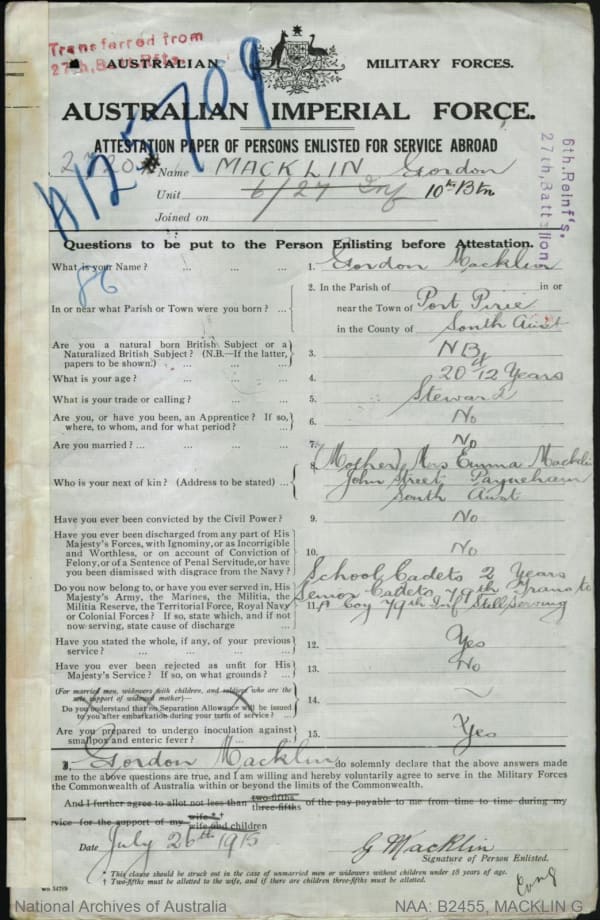 Transferred from
27th, Batt Rfts.
AUSTRALIAN MILITARY FORCES.
A12709
AUSTRALIAN IMPERIAL FORCE.
ATTESTATION PAPER OF PERSONS ENLISTED FOR SERVICE ABROAD
6th. Reinf's.
27th, Battalion
Name MACKLIN Gordon
Unit 6/27 Inf 10th Btn
Joined on
Questions to be put to the Person Enlisting before Attestation.
What is your Name? ... ... ... 1. Gordon Macklin
86
2. In the Parish of in or
In or near what Parish or Town were you born? ... near the Town of Port Pirie
in the County of South Aust
Are you a natural born British Subject or a
Naturalized British Subject? (N.B.—If the latter,
papers to be shown.) ... ... 3. NB
What is your age? ... ... ... 4. 20 4/12 Years
What is your trade or calling? ... ... 5. Steward
Are you, or have you been, an Apprentice? If so,
where, to whom, and for what period? ... 6. No
Are you married? ... ... ... 7. No
(Mother) Mrs Emma Macklin
Who is your next of kin? (Address to be stated) ... John Street Payneham
South Aust
Have you ever been convicted by the Civil Power? 9. No
Have you ever been discharged from any part of His
Majesty's Forces, with Ignominy, or as Incorrigible
and Worthless, or on account of Conviction of
Felony, or of a Sentence of Penal Servitude, or have
you been dismissed with disgrace from the Navy? 10. No
School Cadets 2 Years
Do you now belong to, or have you ever served in, His
Majesty's Army, the Marines, the Militia, the
Militia Reserve, the Territorial Force, Royal Navy
or Colonial Forces? If so, state which, and if not
now serving, state cause of discharge ...
Senior Cadets 79th Trans to
11. A Coy 79th Inf Still Serving
Have you stated the whole, if any, of your previous
service? ... ... ... 12. Yes
Have you ever been rejected as unfit for His
Majesty's Service? If so, on what grounds? ... 13. No
(For married men, widowers with children, and soldiers who are the
sole support of widowed mother)—
Do you understand that no Separation Allowance will be issued
to you after embarkation during your term of service? ... 14. ~
Are you prepared to undergo inoculation against
smallpox and enteric fever? ... ... 15. Yes
I, Gordon Macklin do solemnly declare that the above answers made
me to the above questions are true, and I am willing and hereby voluntarily agree to serve in the Military Forces
the Commonwealth of Australia within or beyond the limits of the Commonwealth.
And I further agree to allot not less than two-fifths three-fifths of the pay payable to me from time to time during my
rvice for the support of my wife *† wife and children
Date July 26th 1915
G Macklin
Signature of Person Enlisted.
* This clause should be struck out in the case of unmarried men or widowers without children under 18 years of age.
† Two-fifths must be allotted to the wife, and if there are children three-fifths must be allotted.
National Archives of Australia NAA: B2455, MACKLIN G